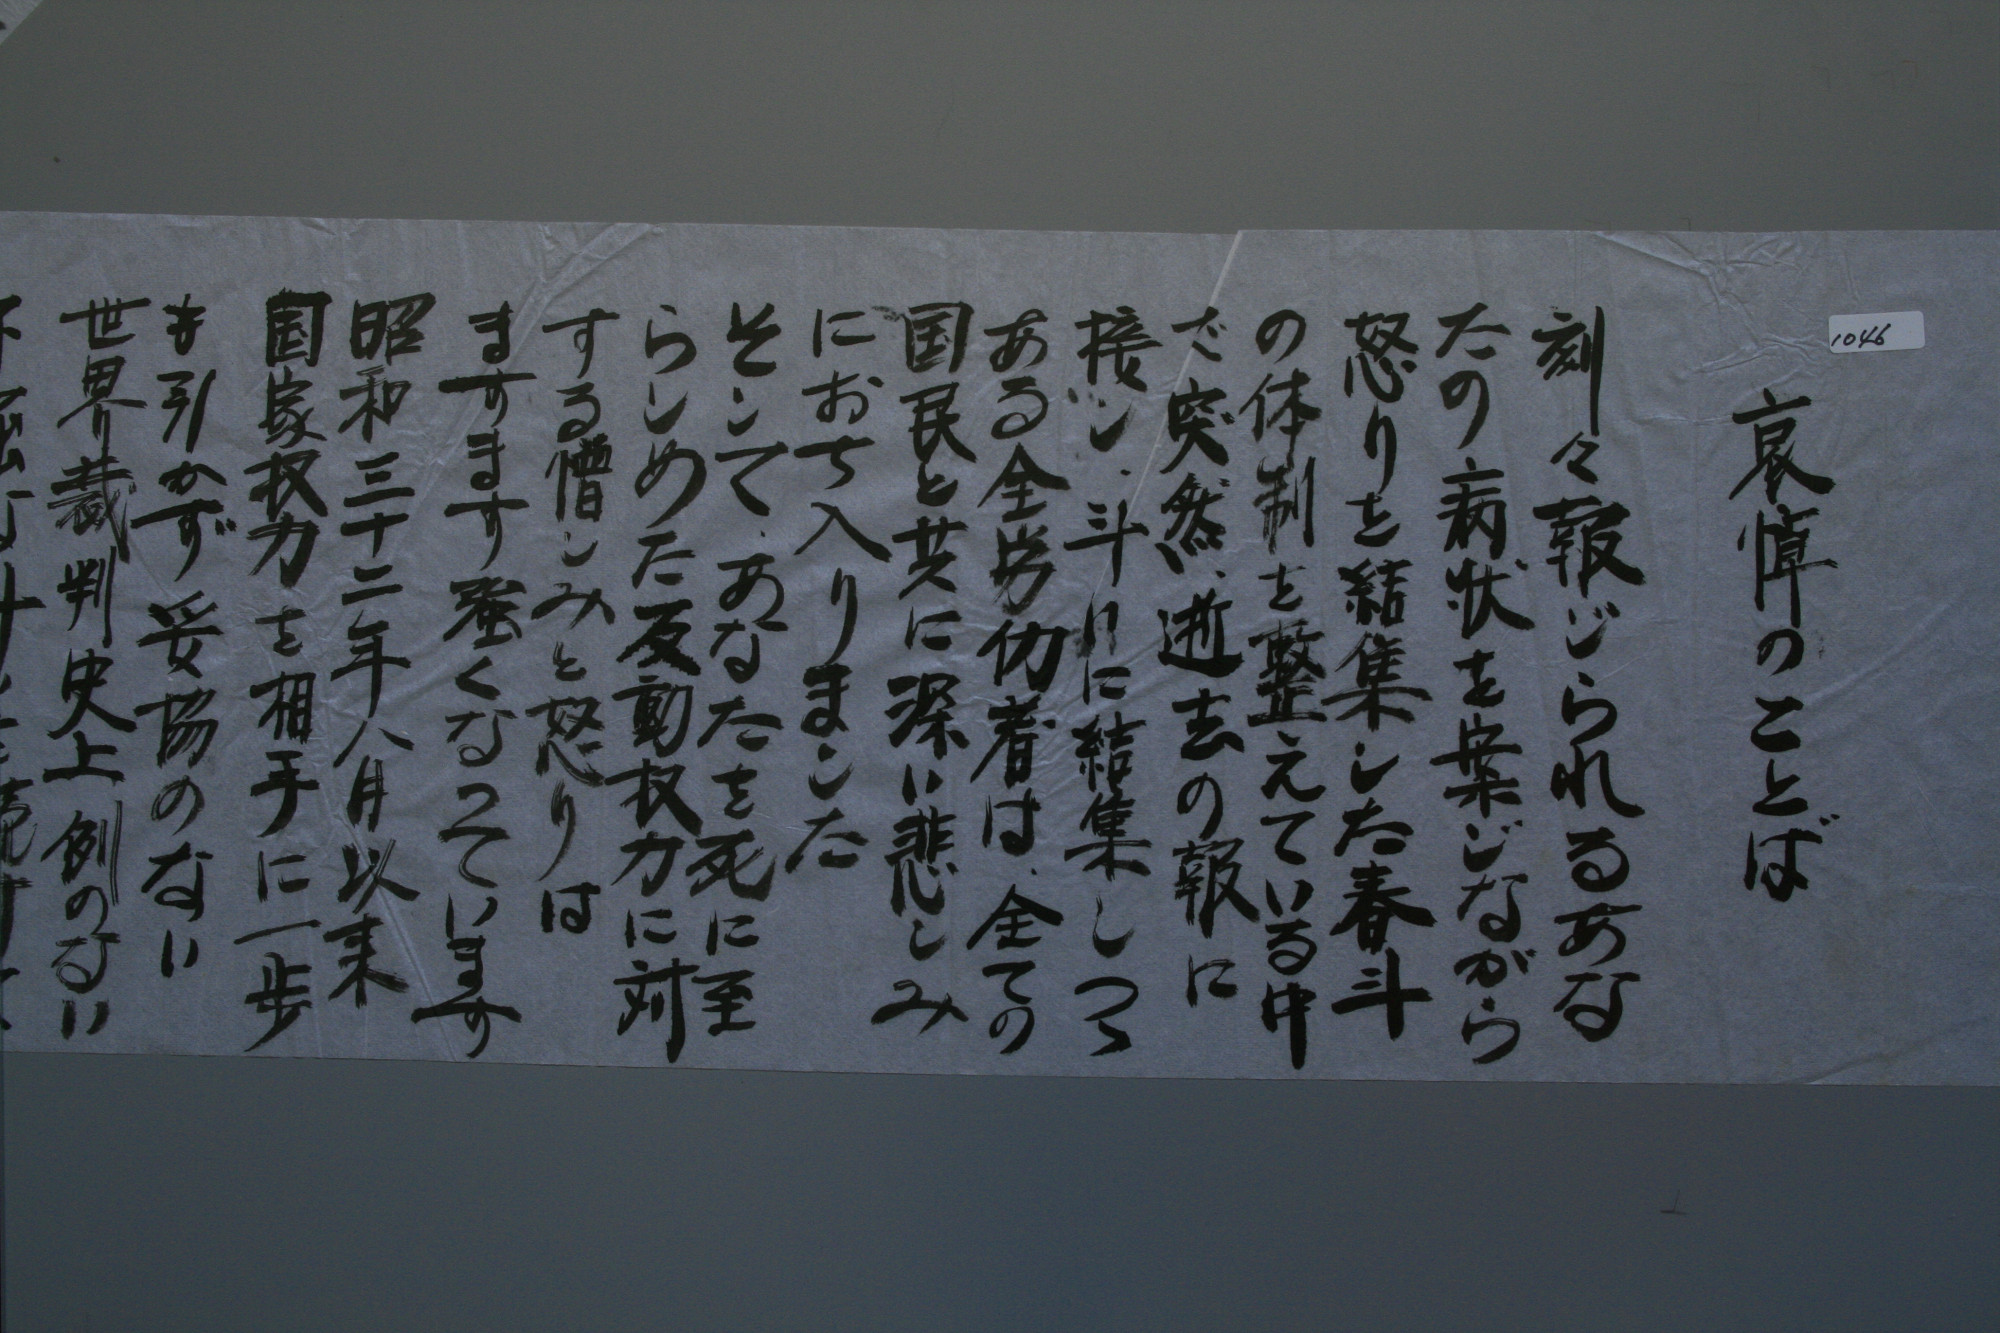 1046
哀悼のことば
刻々報じられるあな
たの病状を案じながら
怒りを結集した春斗
の体制を整えている中
で突然、逝去の報に
接し、斗いに結集しつつ
ある全労仂者は、全ての
国民と共に深い悲しみ
におち入りました
そして、あなたを死に至
らしめた反動权力に対
する憎しみと怒りは
ますます強くなっています
昭和三十二年八月以来
国家权力を相手に一歩
も引かず妥協のない
世界裁判史上例のない